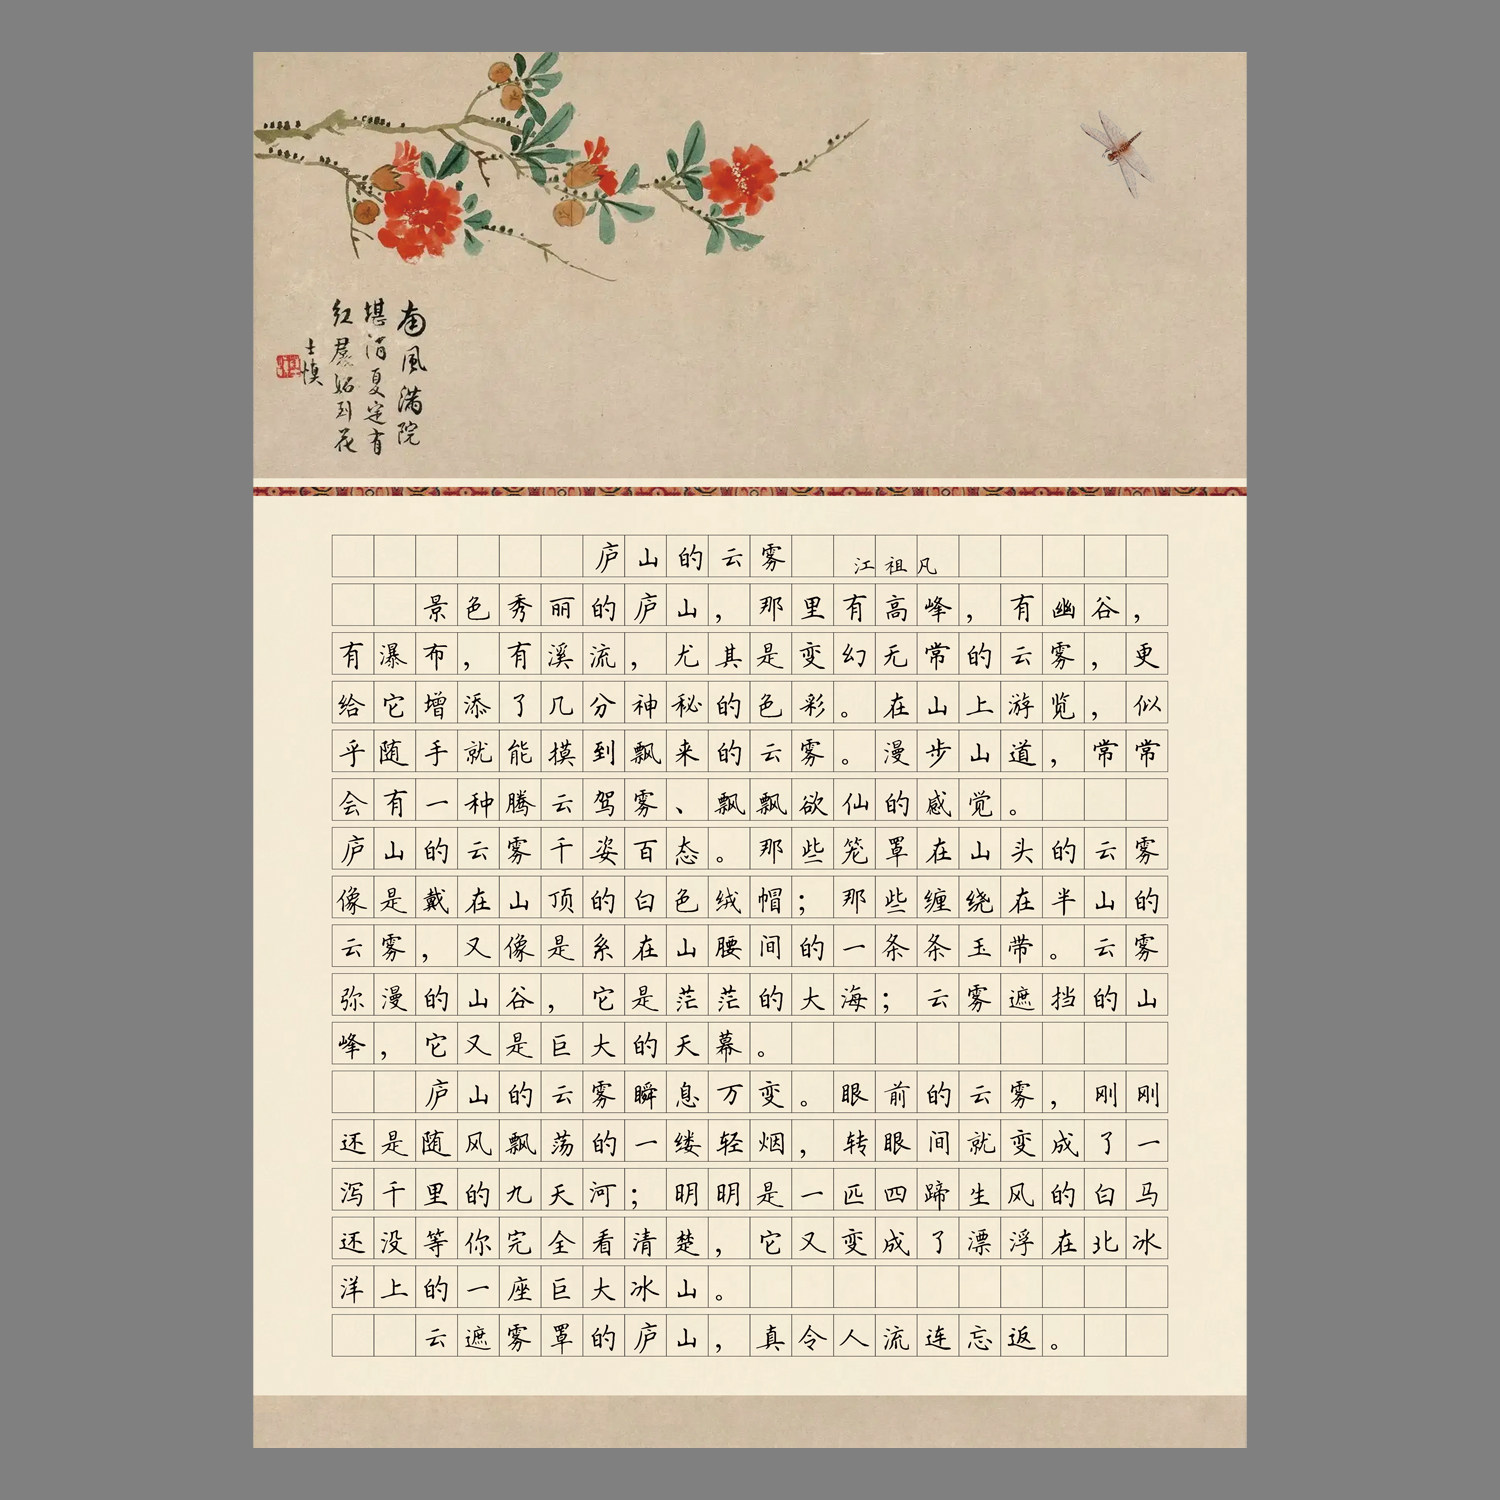 南風满院
堪消夏定有
红
花
士慎
庐山的云雾 江祖凡
景色秀丽的庐山，那里有高峰，有幽谷，
有瀑布，有溪流，尤其是变幻无常的云雾，更
给它增添了几分神秘的色彩。在山上游览，似
乎随手就能摸到飘来的云雾。漫步山道，常常
会有一种腾云驾雾、飘飘欲仙的感觉。
庐山的云雾千姿百态。那些笼罩在山头的云雾
像是戴在山顶的白色绒帽；那些缠绕在半山的
云雾，又像是系在山腰间的一条条玉带。云雾
弥漫的山谷，它是茫茫的大海；云雾遮挡的山
峰，它又是巨大的天幕。
庐山的云雾瞬息万变。眼前的云雾，刚刚
还是随风飘荡的一缕轻烟，转眼间就变成了一
泻千里的九天河；明明是一匹四蹄生风的白马
还没等你完全看清楚，它又变成了漂浮在北冰
洋上的一座巨大冰山。
云遮雾罩的庐山，真令人流连忘返。